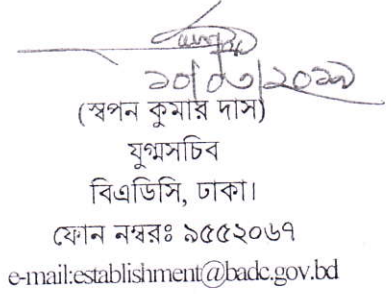 ১০/০৩/২০১৯
(স্বপন কুমার দাস)
যুগ্মসচিব
বিএডিসি, ঢাকা।
ফোন নম্বরঃ ৯৫৫২০৬৭
e-mail:establishment@badc.gov.bd